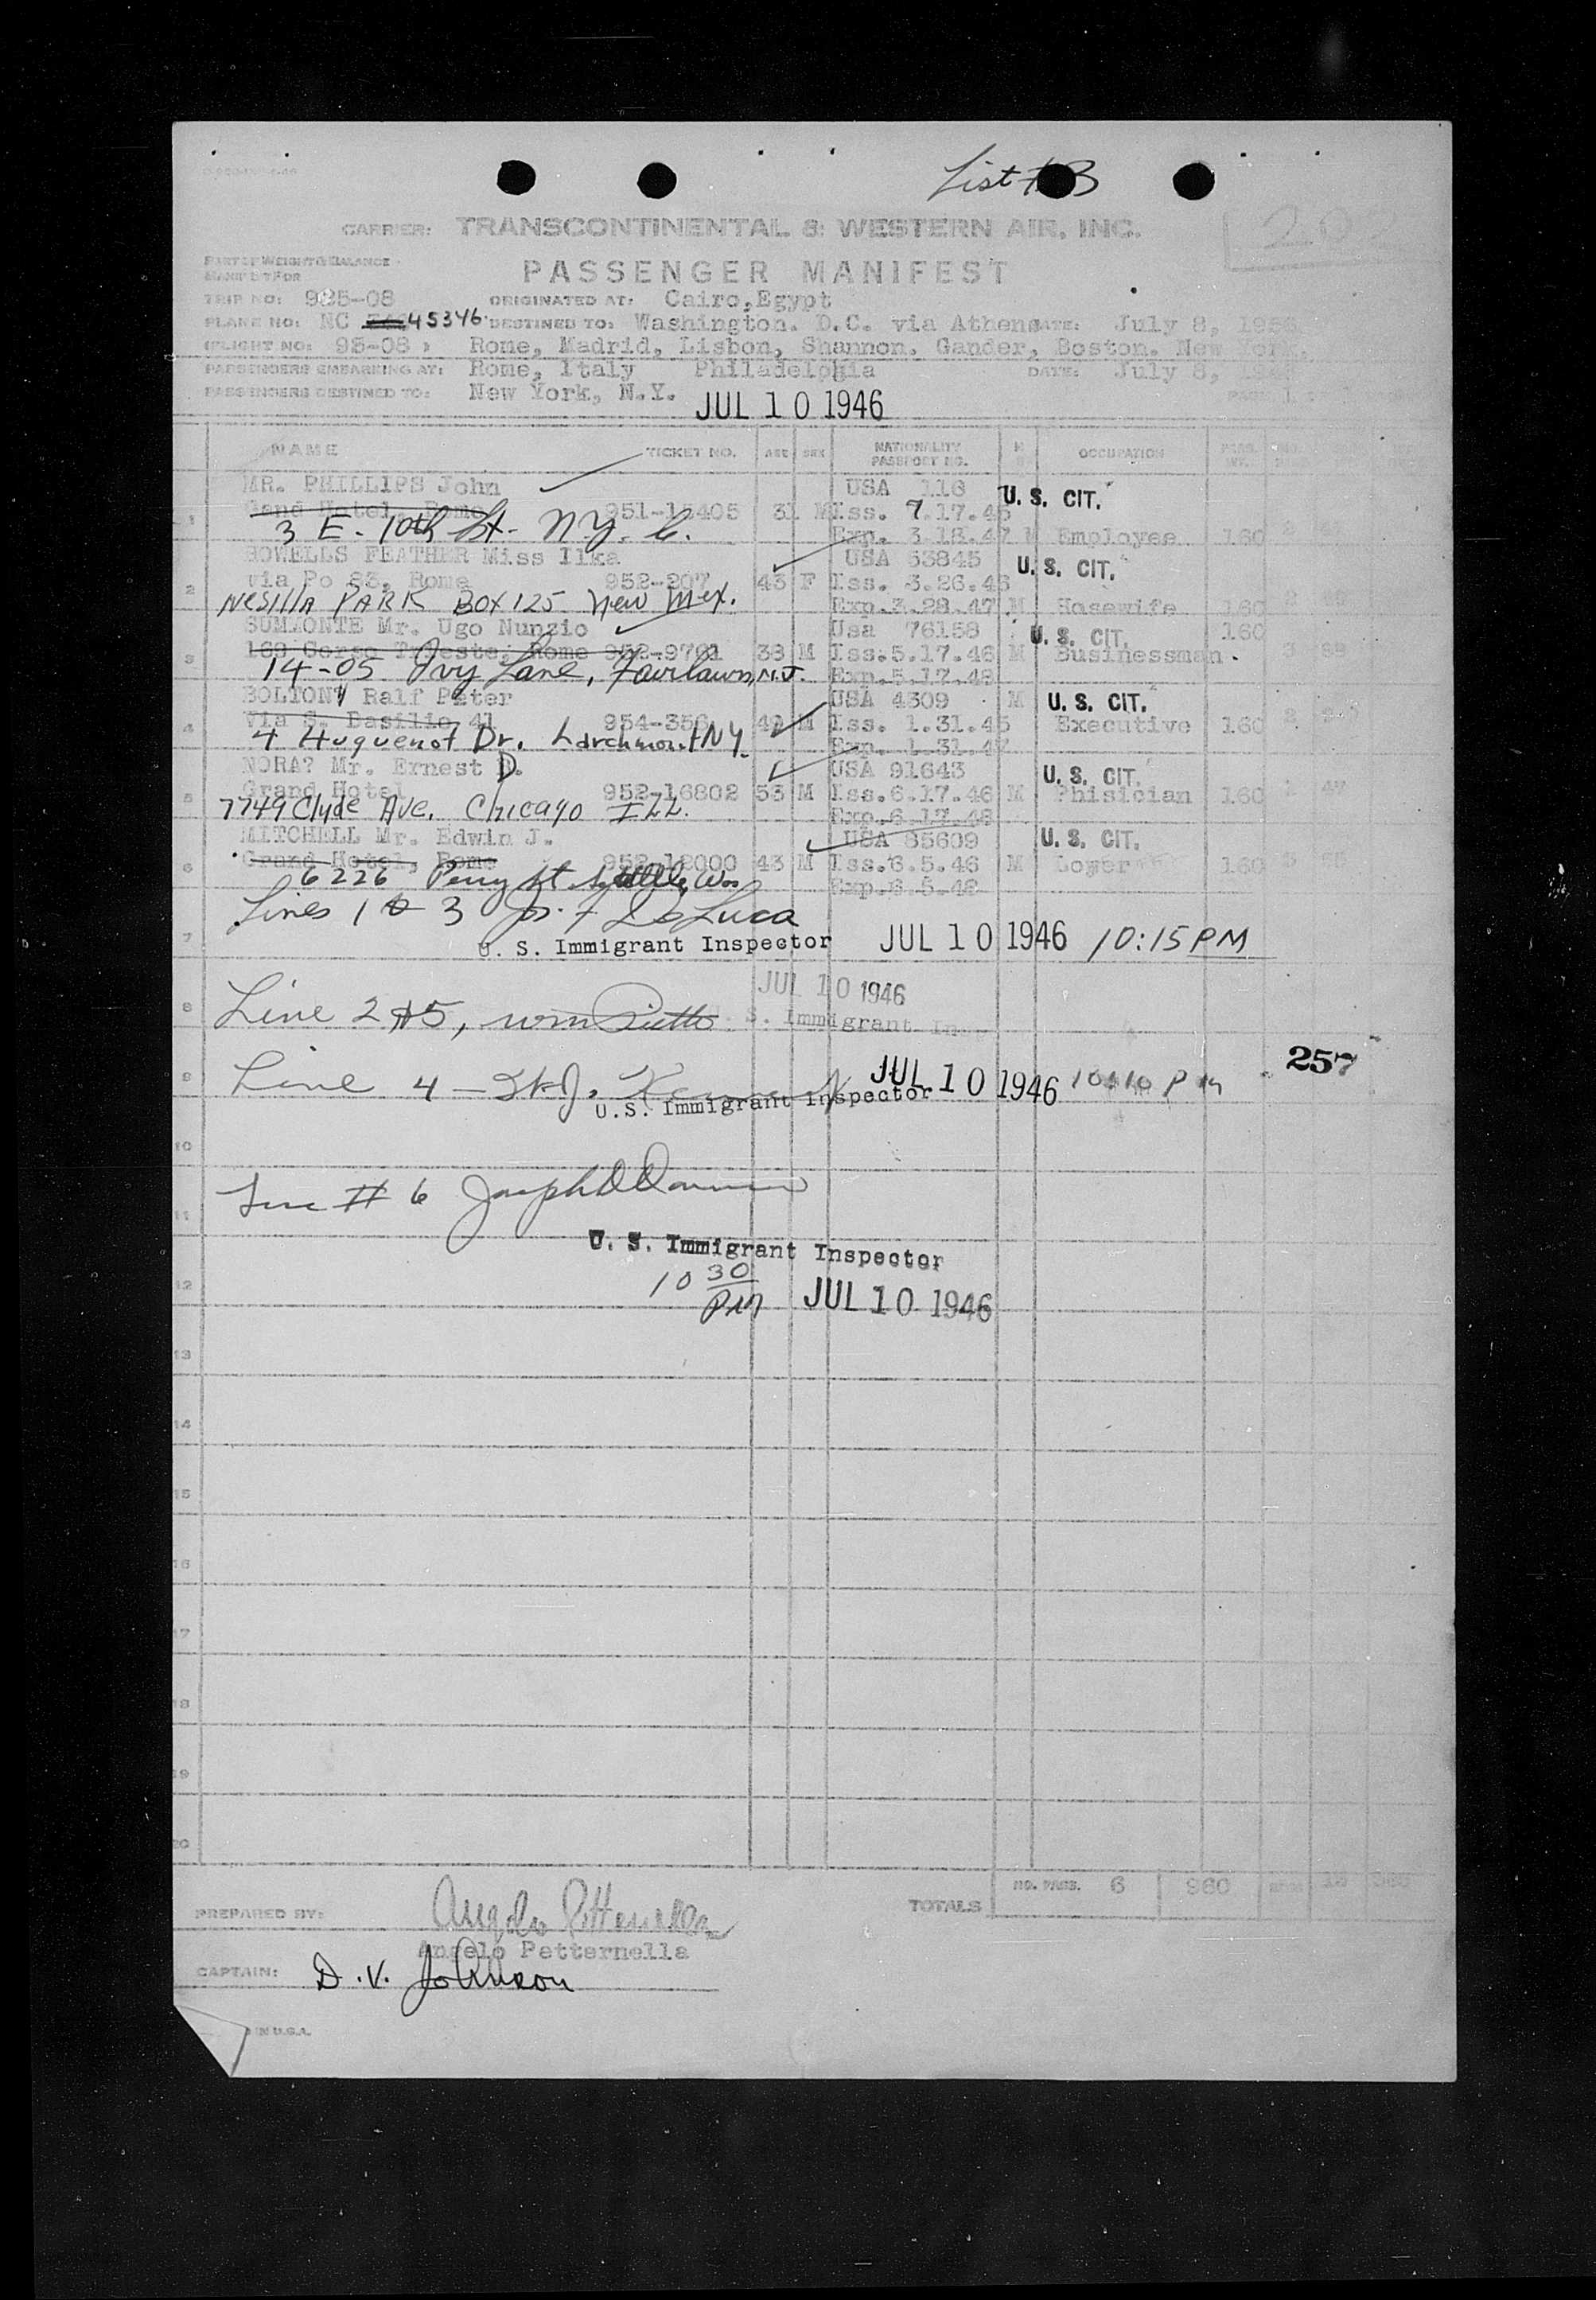 List # 3
CARRIER: TRANSCONTINENTAL & WESTERN AIR, INC.
PART OF WEIGHT & BALANCE
MANIFEST FOR
PASSENGER MANIFEST
TRIP NO: 925-08 ORIGINATED AT: Cairo, Egypt
PLANE NO: NC 45346 DESTINED TO: Washington. D.C. via Athens DATE: July 8, 1956
FLIGHT NO: 95-08 Rome, Madrid, Lisbon, Shannon. Gander, Boston. New York,
PASSENGERS EMBARKING AT: Rome, Italy Philadelphia DATE: July 8,
PASSENGERS DESTINED TO: New York, N.Y. JUL 10 1946
NAME TICKET NO. AGE SEX NATIONALITY PASSPORT NO. OCCUPATION PASS. WT.
MR. PHILLIPS John USA 116 U. S. CIT.
1 Gand Hotel, Rome 951-12405 31 M Iss. 7.17.45
3 E. 10th St. N.Y. C. Exp. 3.18.47 M Employee 160
BOWELLS FEATHER Miss Ilka USA 53845 U. S. CIT.
2 via Po 83, Rome 952-207 43 F Iss. 3.26.46
NESILLA PARK BOX 125 New Mex. Exp.3.28.47 M Hasewife 160
SUMMONTE Mr. Ugo Nunzio Usa 76158 U. S. CIT. 160
3 169 Corso Trieste, Rome 952-9761 38 M Iss.5.17.46 M Businessman
14-05 Ivy Lane, Fairlawn, N.J. Exp.5.17.48
BOLTONY Ralf Peter USA 4309 M U. S. CIT.
4 Via S. Basilio 41 954-356 49 M Iss. 1.31.45 Executive 160
4 Huguenot Dr. Larchmont NY. Exp. 1.31.47
NORA? Mr. Ernest D. USA 91643 U. S. CIT.
5 Grand Hotel 952-16802 53 M Iss.6.17.46 M Phisician 160 2 47
7749 Clyde Ave. Chicago ILL. Exp.6.17.48
MITCHELL Mr. Edwin J. USA 85609 U. S. CIT.
6 Grand Hotel, Rome 952-12000 43 M Iss.6.5.46 M Loyer 160
6226 Perry St Seattle, Wn Exp.6.5.48
Lines 1 & 3 Jos. F DeLuca
7 U. S. Immigrant Inspector JUL 10 1946 10:15 PM
JUL 10 1946
8 Line 2 & 5, Wm S. Immigrant In
257
9 Line 4 - JUL 10 1946 10:10 PM
U.S. Immigrant Inspector
10
Line # 6 Joseph
11
U. S. Immigrant Inspector
12 10 30 PM JUL 10 1946
13
14
15
16
17
18
19
20
TOTALS NO. PASS. 6 960
PREPARED BY: Angelo Petternella
Angelo Petternella
CAPTAIN: D. V. Johnson
IN U.S.A.